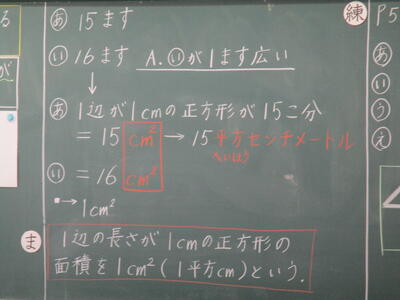 あ 15ます
い 16ます A.いが1ます広い
↓
あ 1辺が1cmの正方形が15こ分
= 15cm² → 15平方センチメートル
へいほう
い = 16cm²
■→1cm²
ま 1辺の長さが1cmの正方形の
面積を1cm²(1平方cm)という.
る
が
練 P5
あ
い
う
え